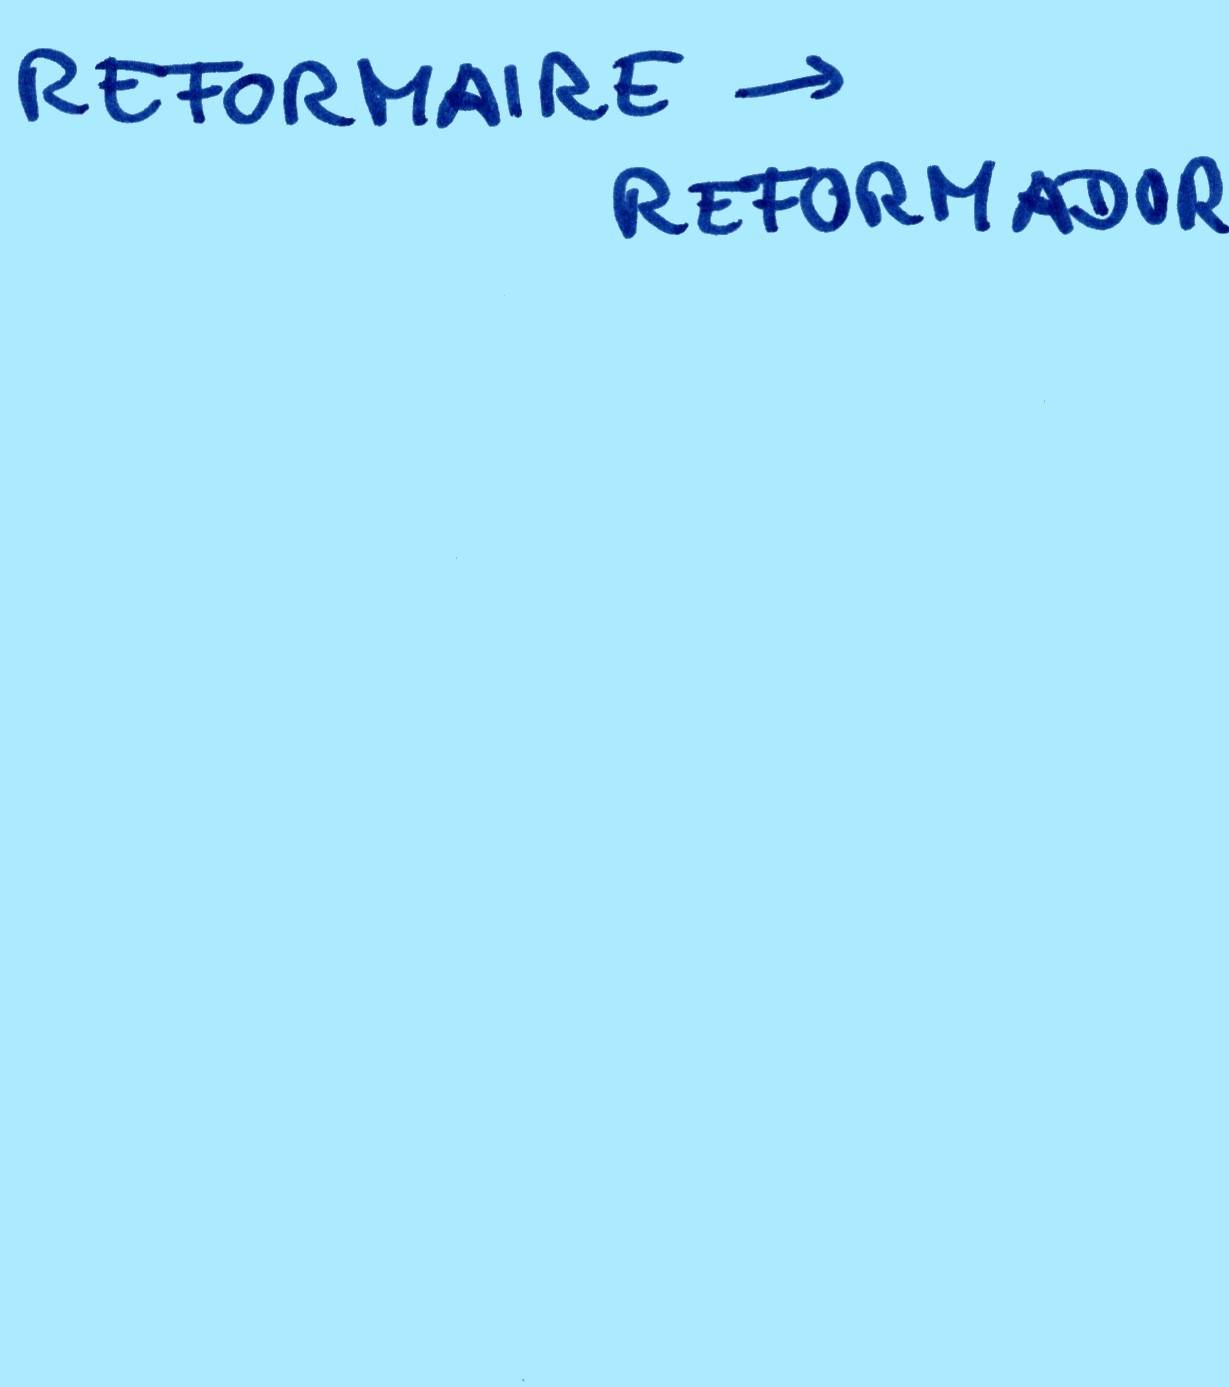 REFORMAIRE →
REFORMADOR